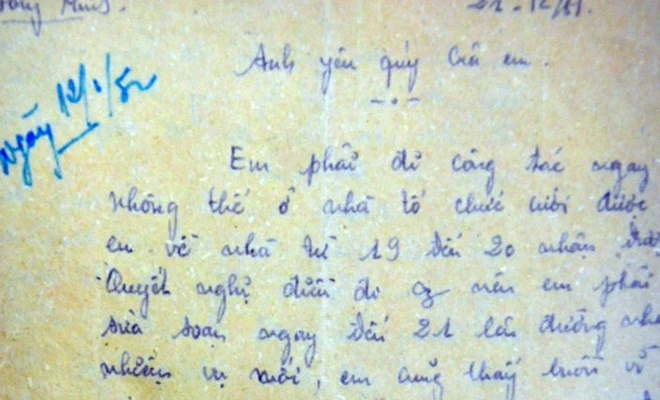 21-12/81.
Anh yêu quý của em.
Ngày 12/1/82
Em phải đi công tác ngay
không thể ở nhà tổ chức cưới được
em về nhà từ 19 đến 20 nhận được
Quyết nghị điều đi nên em phải
sửa soạn ngay đến 21 lên đường
nhiệm vụ mới, em cũng thấy buồn vì